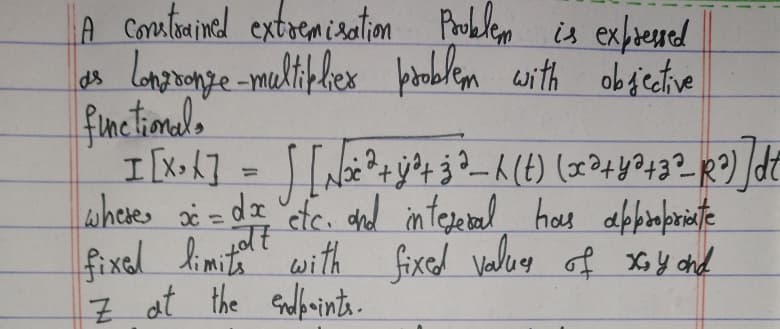 A Constrained extremisation Problem is expressed
as Langrange-multiplier problem with objective
functional,
I[x,λ] = ∫[√ẋ²+ẏ²+ż² - λ(t) (x²+y²+z²-R²)]dt
where, ẋ = dx/dt etc. and integeral has appropriate
fixed limits with fixed values of x, y and
z at the endpoints.